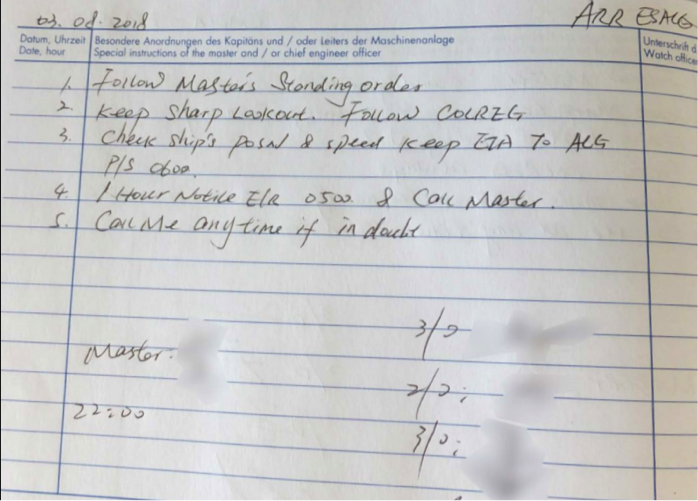 03. 08. 2018 ARR ESALG
Datum, Uhrzeit Besondere Anordnungen des Kapitäns und / oder Leiters der Maschinenanlage Unterschrift d
Date, hour Special instructions of the master and / or chief engineer officer Watch office
1. Follow Master's Standing order
2. Keep Sharp Lookout. Follow COLREG
3. Check ship's posn & speed keep ETA To ALG
P/S 0600.
4. 1 Hour Notice E/R 0500 & Call Master.
5. Call Me anytime if in doubt
3/O
Master:
2/O;
22:00
3/O;